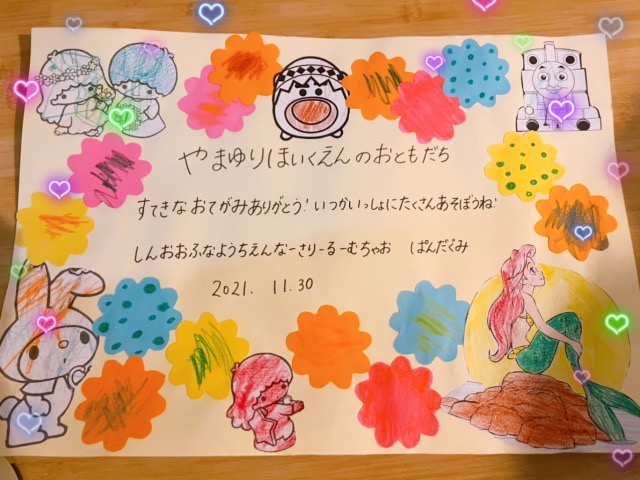 やまゆりほいくえんのおともだち
すてきなおてがみありがとう!いつかいっしょにたくさんあそぼうね!
しんおおふなようちえんなーさりーるーむちゃお ぱんだぐみ
2021. 11.30